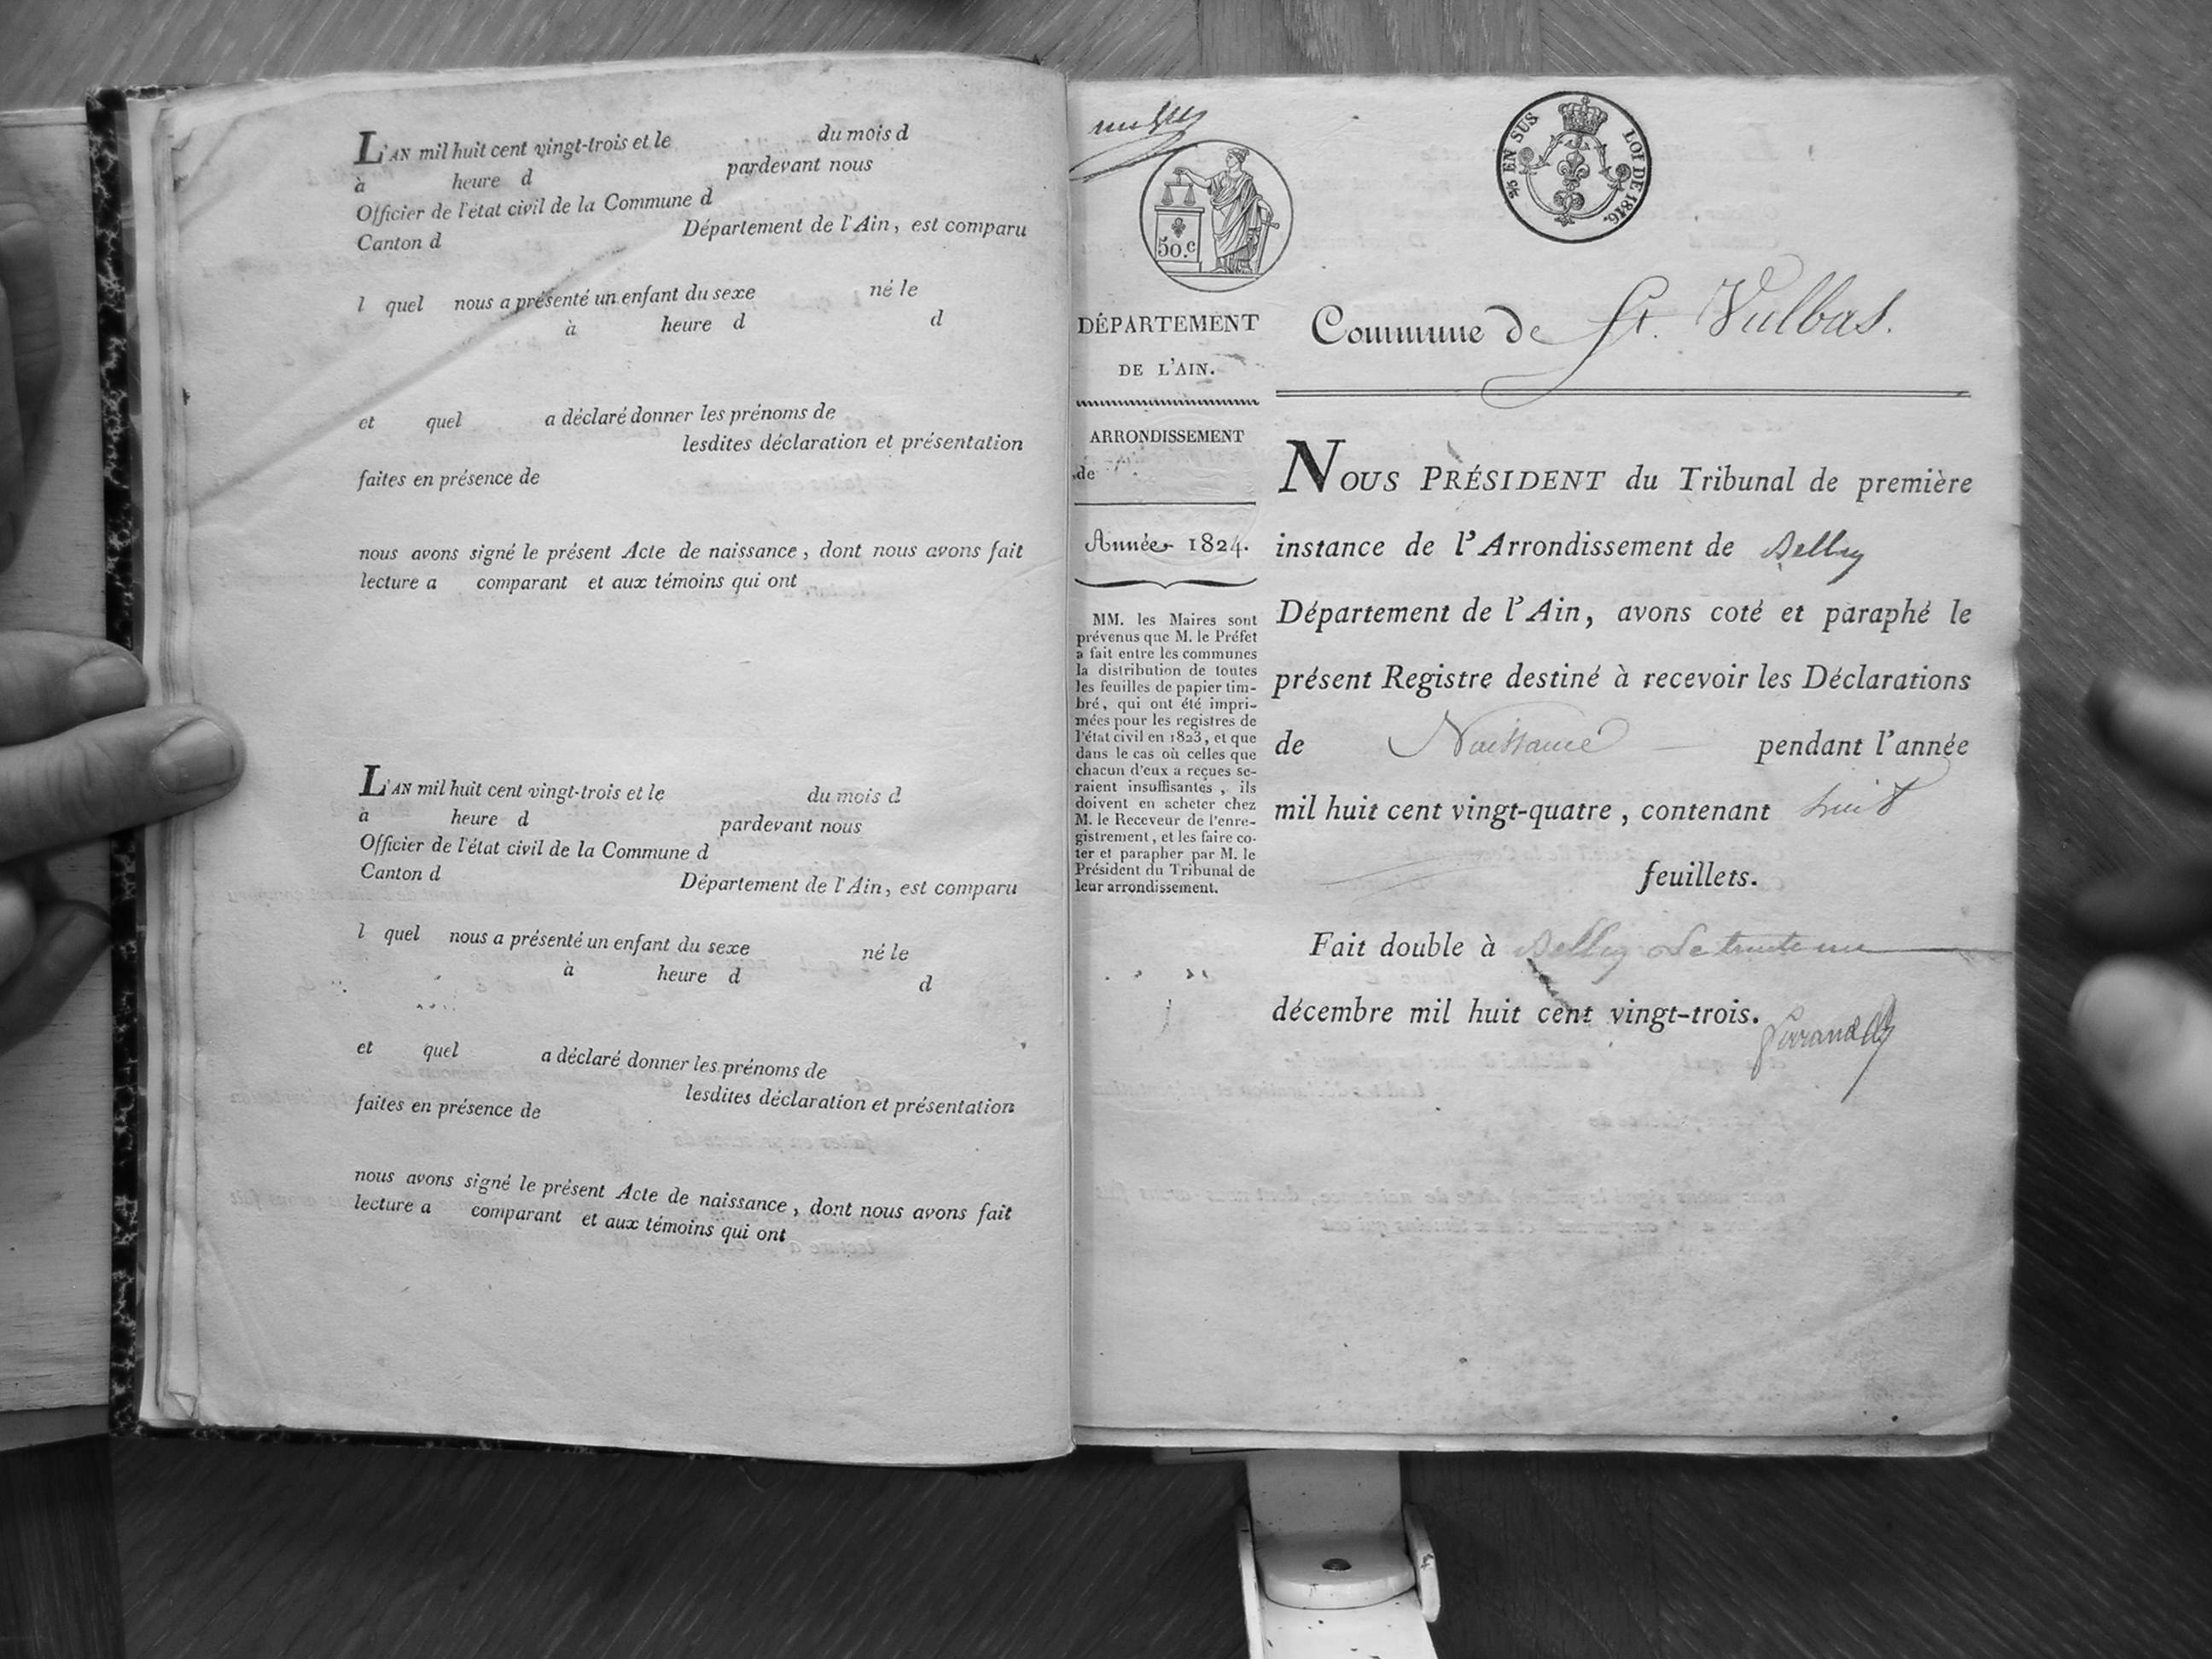 L'AN mil huit cent vingt-trois et le du mois d
à heure d pardevant nous
Officier de l'état civil de la Commune d
Canton d Département de l'Ain, est comparu
l quel nous a présenté un enfant du sexe né le
à heure d d
et quel a déclaré donner les prénoms de
lesdites déclaration et présentation
faites en présence de
nous avons signé le présent Acte de naissance, dont nous avons fait
lecture a comparant et aux témoins qui ont
L'AN mil huit cent vingt-trois et le du mois d
à heure d pardevant nous
Officier de l'état civil de la Commune d
Canton d Département de l'Ain, est comparu
l quel nous a présenté un enfant du sexe né le
à heure d d
et quel a déclaré donner les prénoms de
lesdites déclaration et présentation
faites en présence de
nous avons signé le présent Acte de naissance, dont nous avons fait
lecture a comparant et aux témoins qui ont
50.c
EN SUS LOI DE 1816.
DÉPARTEMENT
DE L'AIN.
ARRONDISSEMENT
de
Année 1824.
MM. les Maires sont
prévenus que M. le Préfet
a fait entre les communes
la distribution de toutes
les feuilles de papier tim-
bré, qui ont été impri-
mées pour les registres de
l'état civil en 1823, et que
dans le cas où celles que
chacun d'eux a reçues se-
raient insuffisantes, ils
doivent en acheter chez
M. le Receveur de l'enre-
gistrement, et les faire co-
ter et parapher par M. le
Président du Tribunal de
leur arrondissement.
Commune de St. Vulbas.
NOUS PRÉSIDENT du Tribunal de première
instance de l'Arrondissement de Belley
Département de l'Ain, avons coté et paraphé le
présent Registre destiné à recevoir les Déclarations
de Naissance pendant l'année
mil huit cent vingt-quatre, contenant huit
feuillets.
Fait double à Belley Le trente un
décembre mil huit cent vingt-trois.